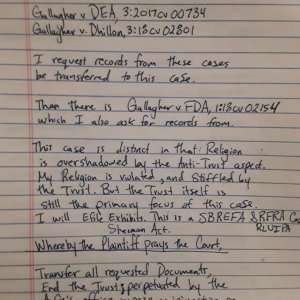 Gallagher v. DEA, 3:2017cv00734
Gallagher v. Dhillon, 3:18cv02801
I request records from these cases
be transferred to this case.
Then there is Gallagher v. FDA, 1:18cv02154
which I also ask for records from.
This case is distinct in that Religion
is overshadowed by the Anti-Trust aspect.
My Religion is violated, and Stiffled by
the Trust. But the Trust itself is
still the primary focus of this case.
I will Exhibits. This is a SBREFA & RFRA
RLUIPA
Sherman Act.
Whereby the Plaintiff prays the Court,
Transfer all requested Documents,
End the Trust, perpetuated by the
office